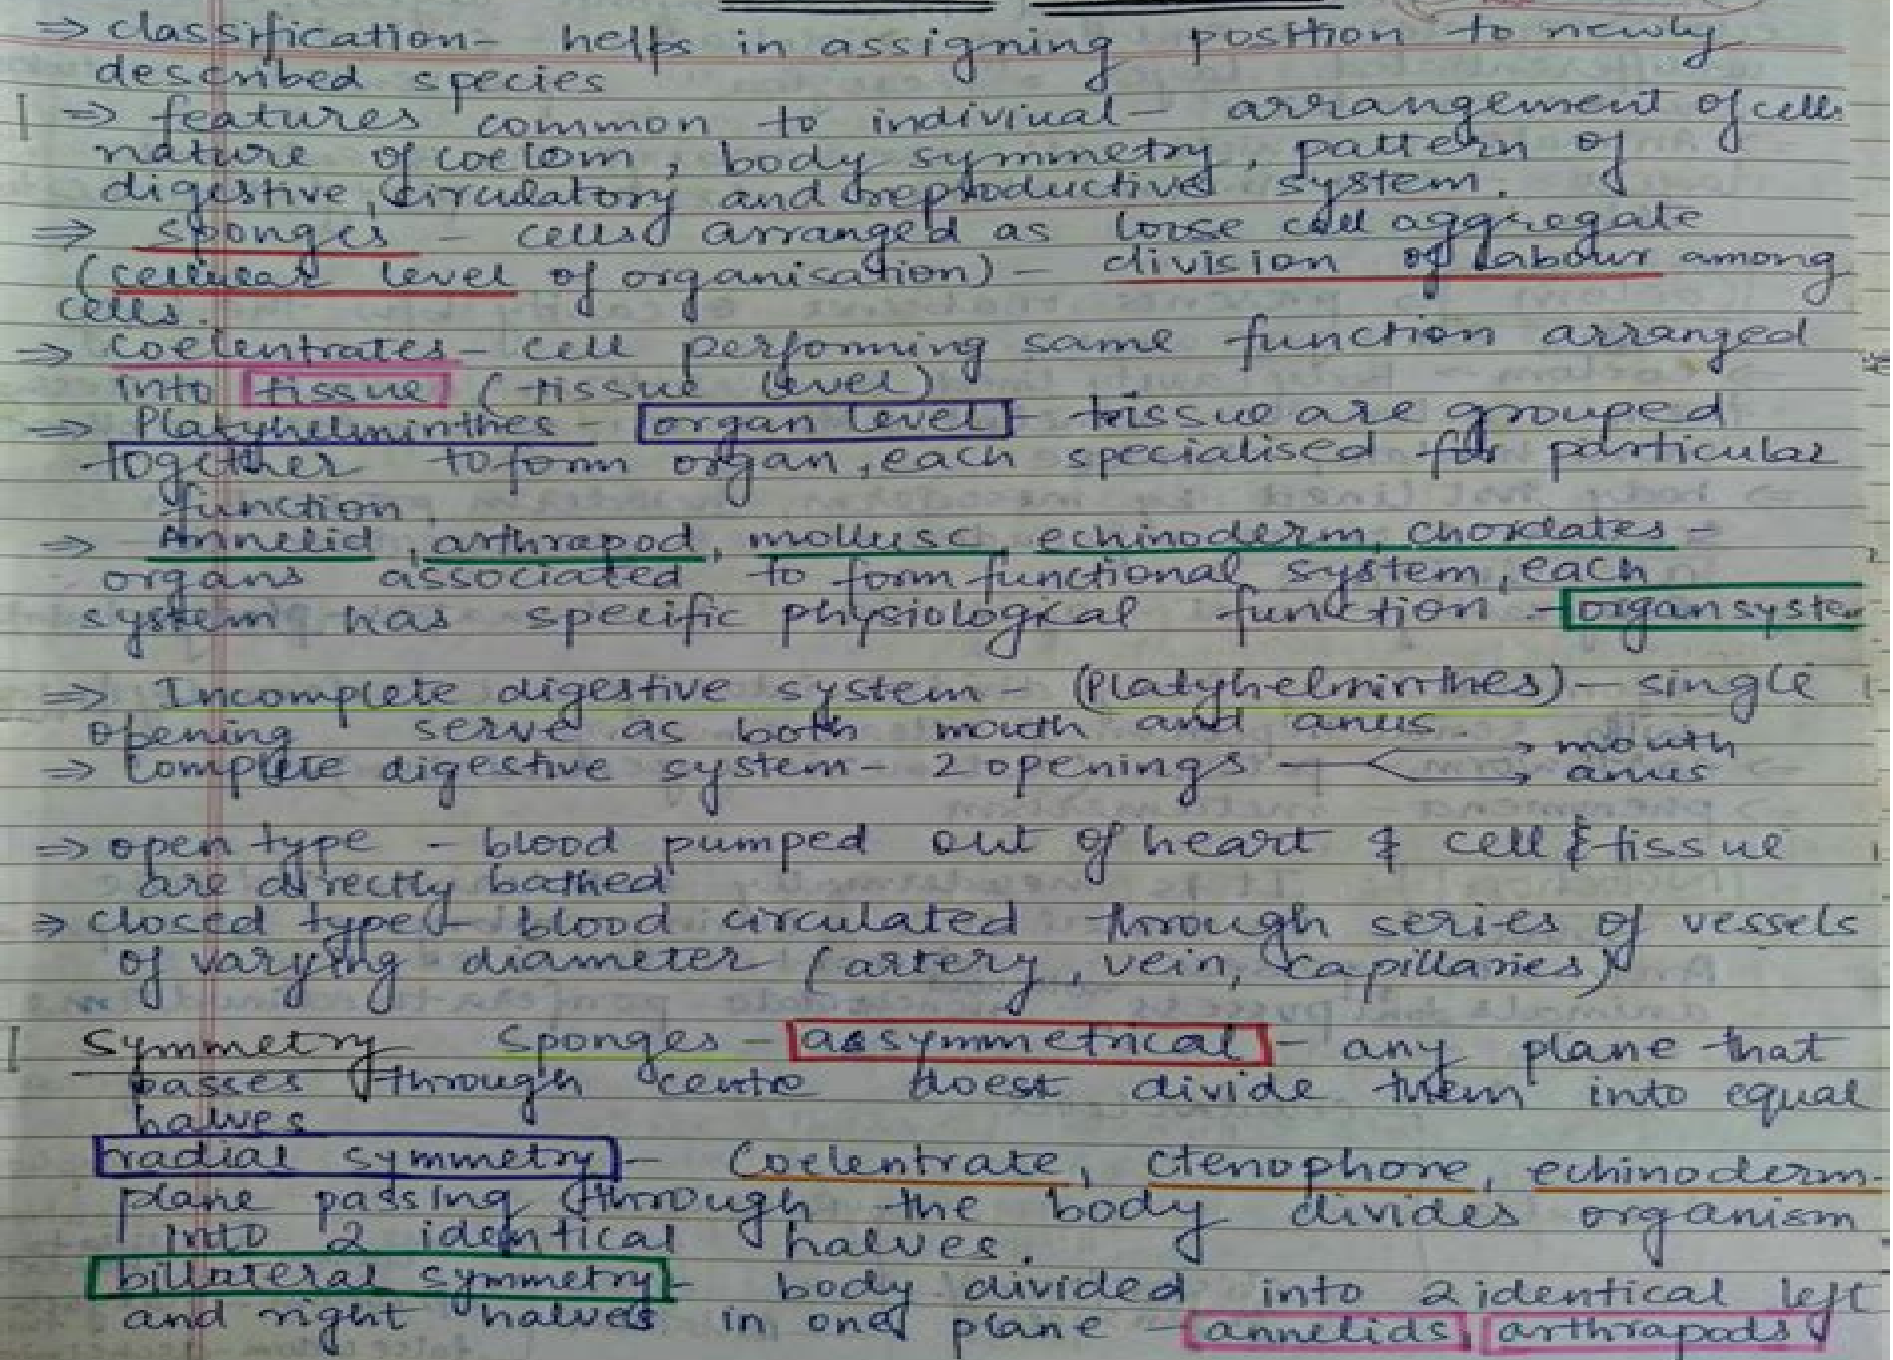 ⇒ classification- helps in assigning position to newly
described species
⇒ features common to indiviual- arrangement of cells
nature of coelom, body symmetry, pattern of
digestive, circulatory and reproductive system.
⇒ Sponges - cells arranged as loose cell aggregate
(cellular level of organisation) - division of labour among
cells.
⇒ Coelentrates- cell performing same function arranged
into tissue (tissue level)
⇒ Platyhelminthes- organ level - tissue are grouped
together to form organ, each specialised for particular
function.
⇒ Annelid, arthrapod, mollusc, echinoderm, chordates -
organs associated to form functional system, each
system has specific physiological function - organ system
⇒ Incomplete digestive system- (Platyhelminthes)- single
opening serve as both mouth and anus.
⇒ Complete digestive system- 2 openings → mouth
→ anus
⇒ open type - blood pumped out of heart & cell & tissue
are directly bathed
⇒ closed type- blood circulated through series of vessels
of varying diameter (artery, vein, capillaries)
Symmetry Sponges - assymmetrical - any plane that
passes through centre doest divide them into equal
halves
radial symmetry - Coelentrate, ctenophore, echinoderm-
plane passing through the body divides organism
into 2 identical halves.
billateral symmetry- body divided into 2 identical left
and right halves in one plane - annelids, arthrapods